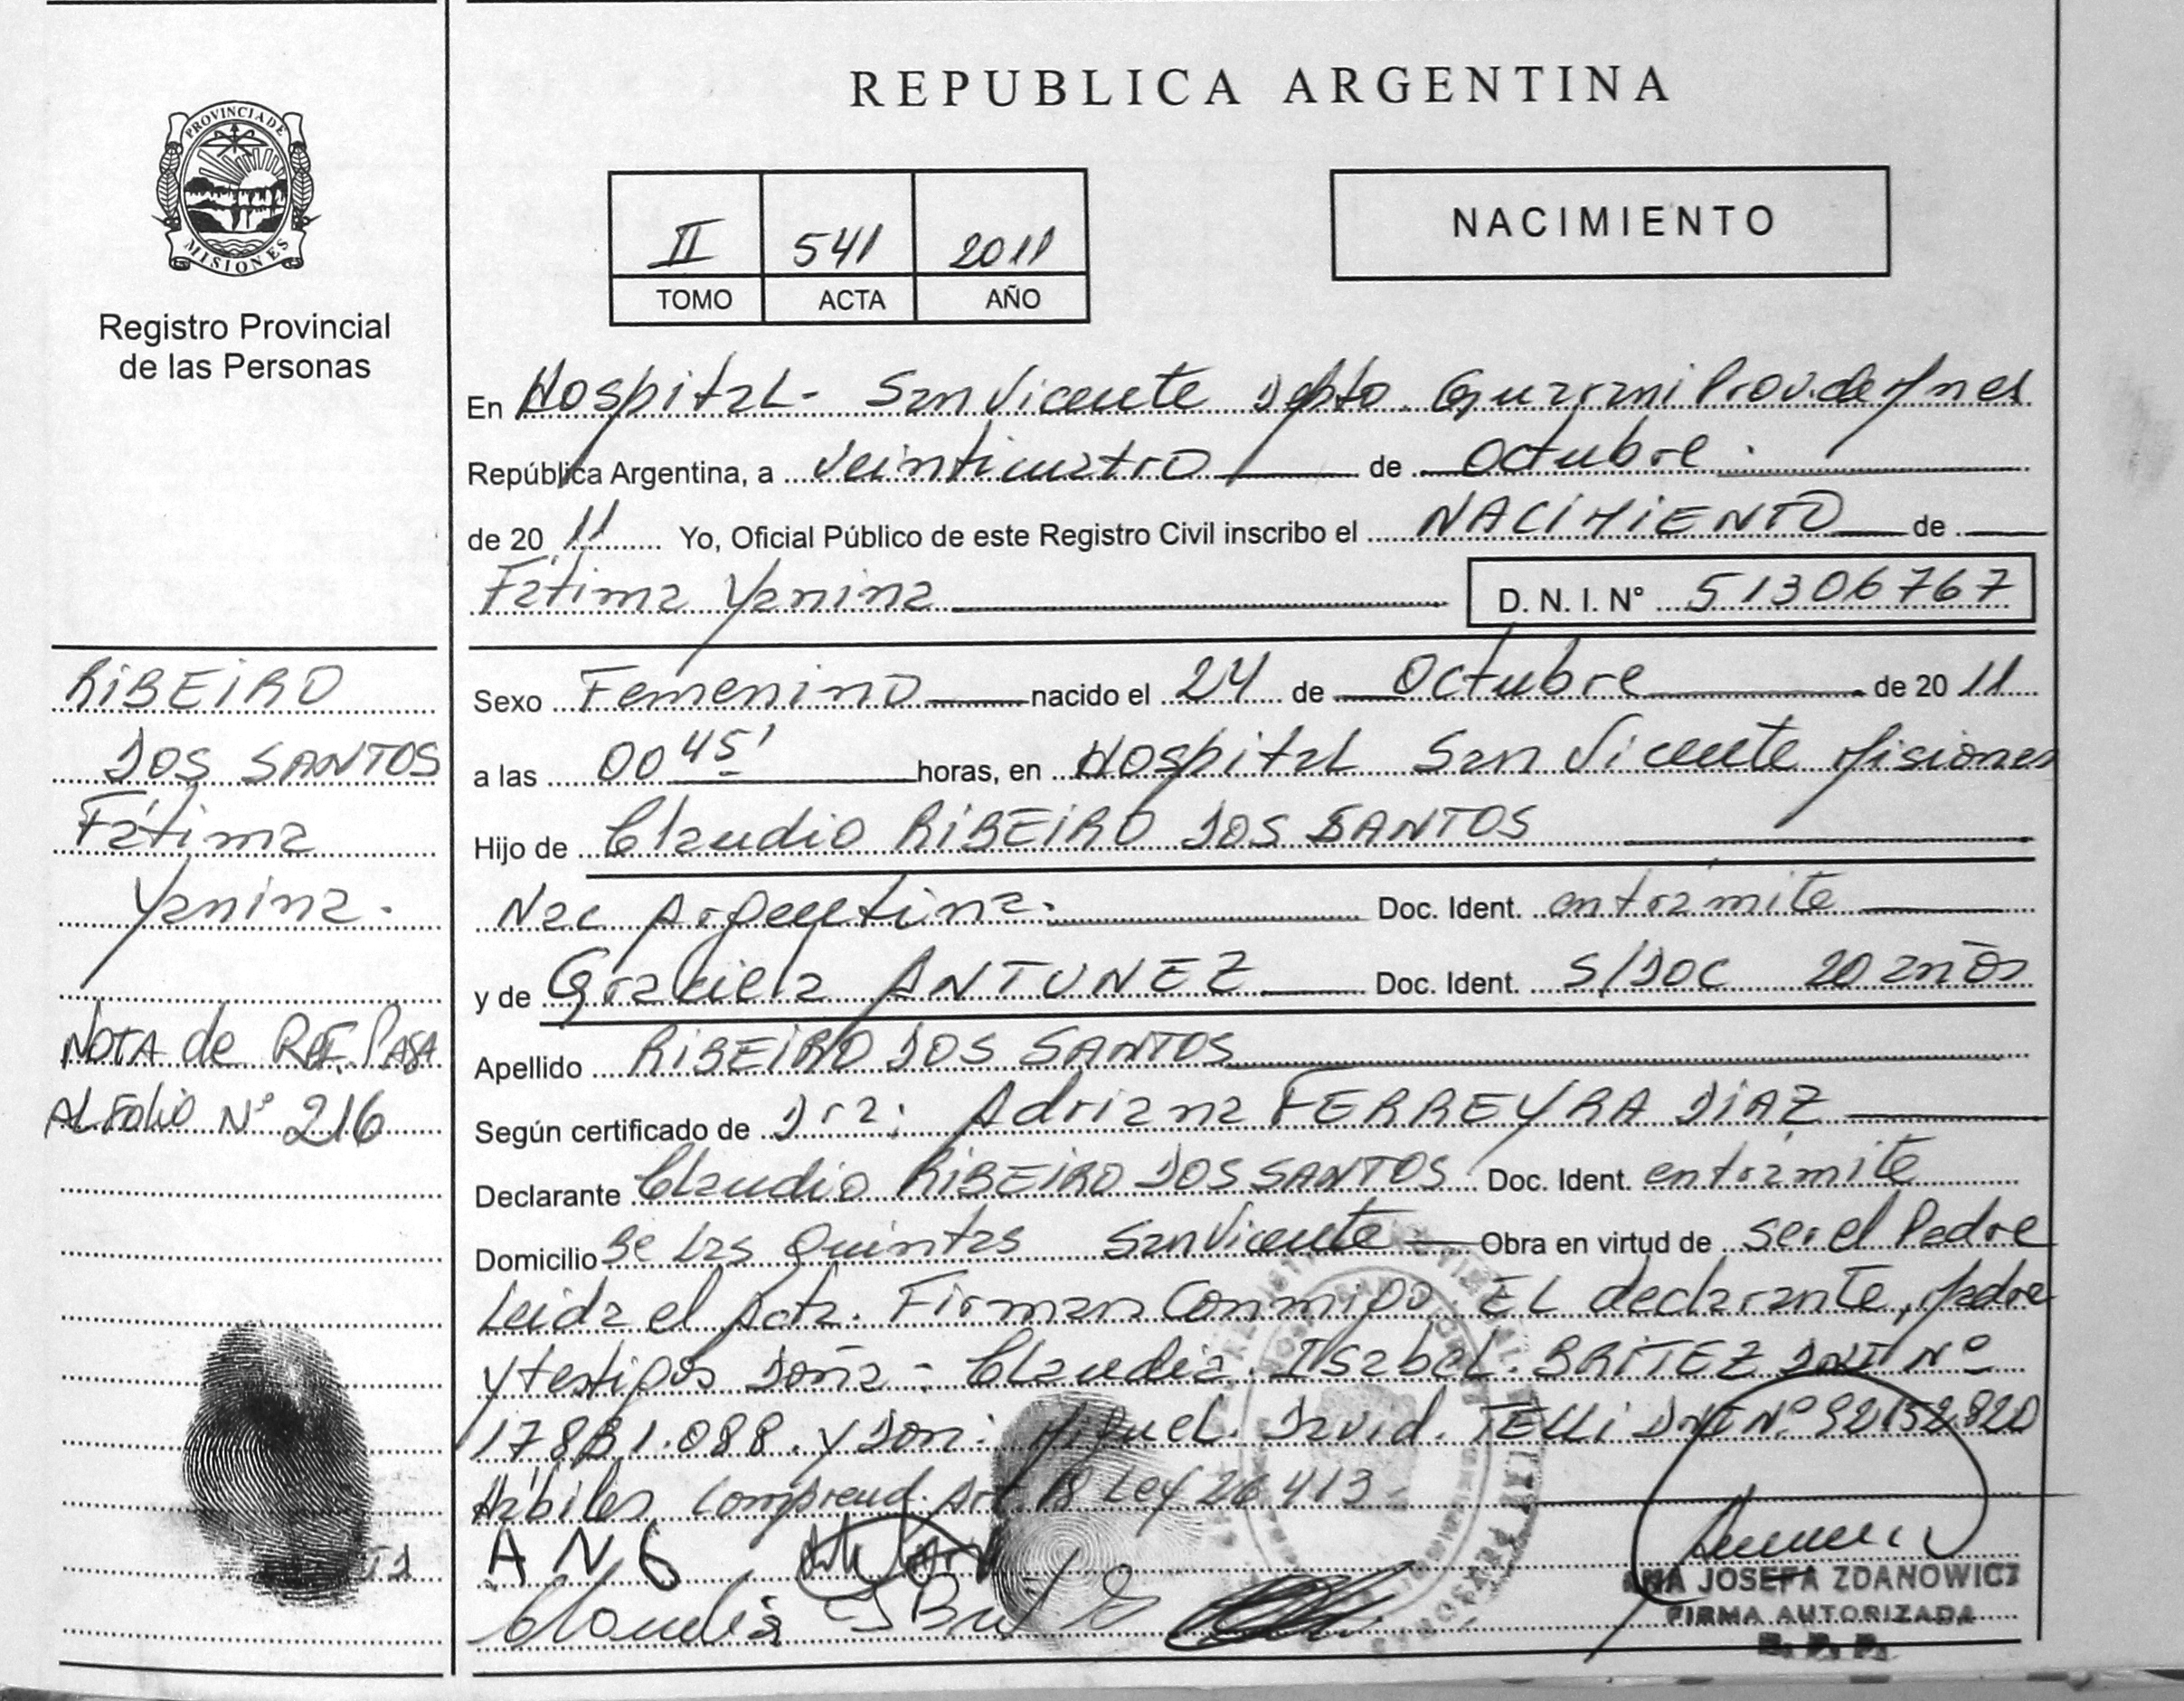 REPUBLICA ARGENTINA
PROVINCIA DE
MISIONES
Registro Provincial
de las Personas
II 541 2011
TOMO ACTA AÑO
NACIMIENTO
En Hospital - San Vicente Dpto Guarani Prov. de Mnes
República Argentina, a veinticuatro de Octubre
de 20 11 Yo, Oficial Público de este Registro Civil inscribo el NACIMIENTO de
Fátima Yanina D. N. I. N° 51306767
RIBEIRO
DOS SANTOS
Fátima
Yanina.
NOTA de REF. PASA
AL Folio N° 216
Sexo Femenino nacido el 24 de Octubre de 20 11
a las 00 45' horas, en Hospital San Vicente Misiones
Hijo de Claudio RIBEIRO DOS SANTOS
Nac Argentina. Doc. Ident. en trámite
y de Graciela ANTUNEZ Doc. Ident. S/DOC 20 años
Apellido RIBEIRO DOS SANTOS
Según certificado de Dra: Adriana FERREYRA DIAZ
Declarante Claudio RIBEIRO DOS SANTOS Doc. Ident. en trámite
Domicilio Be Las Quintas San Vicente Obra en virtud de ser el Padre
Leida el Acta. Firman Conmigo. EL declarante, Madre
y testigos Doña - Claudia. Isabel. BRITEZ DNI N°
y Don: Miguel. David. TELLI DNI N° 92152.820
Hábiles Comprend. Art. 18 Ley 26 413
Claudia
ANA JOSEFA ZDANOWICZ
FIRMA AUTORIZADA
R. P. P.